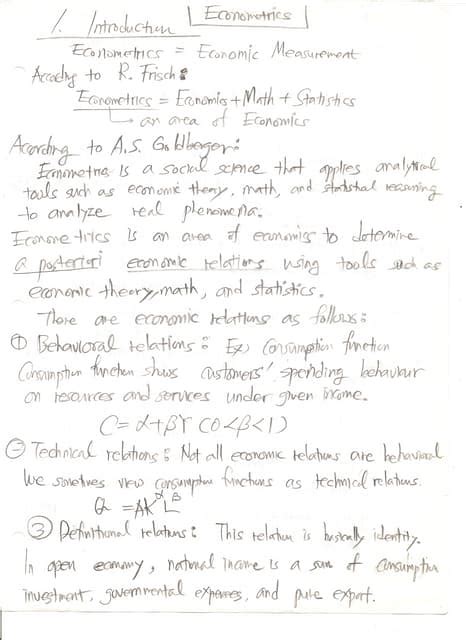 Econometrics
1. Introduction
Econometrics = Economic Measurement
Accordig to R. Frisch:
Econometrics = Economics + Math + Statistics
→ an area of Economics
According to A.S. Goldberger:
Econometrics is a social science that applies analytical
tools such as economic theory, math, and statistical reasoning
to analyze real phenomena.
Econometrics is an area of economics to determine
a posteriori economic relations using tools such as
economic theory, math, and statistics.
There are economic relations as follows:
① Behavioral relations: Ex) Consumption function
Consumption function shows customers' spending behaviour
on resources and services under given income.
C = α + βY (0<β<1)
② Technical relations: Not all economic relations are behavioral
We sometimes view consumption functions as technical relations.
Q = AK^α L^β
③ Definitional relations: This relation is basically identity.
In open economy, national income is a sum of consumption
investment, governmental expenses, and pure export.